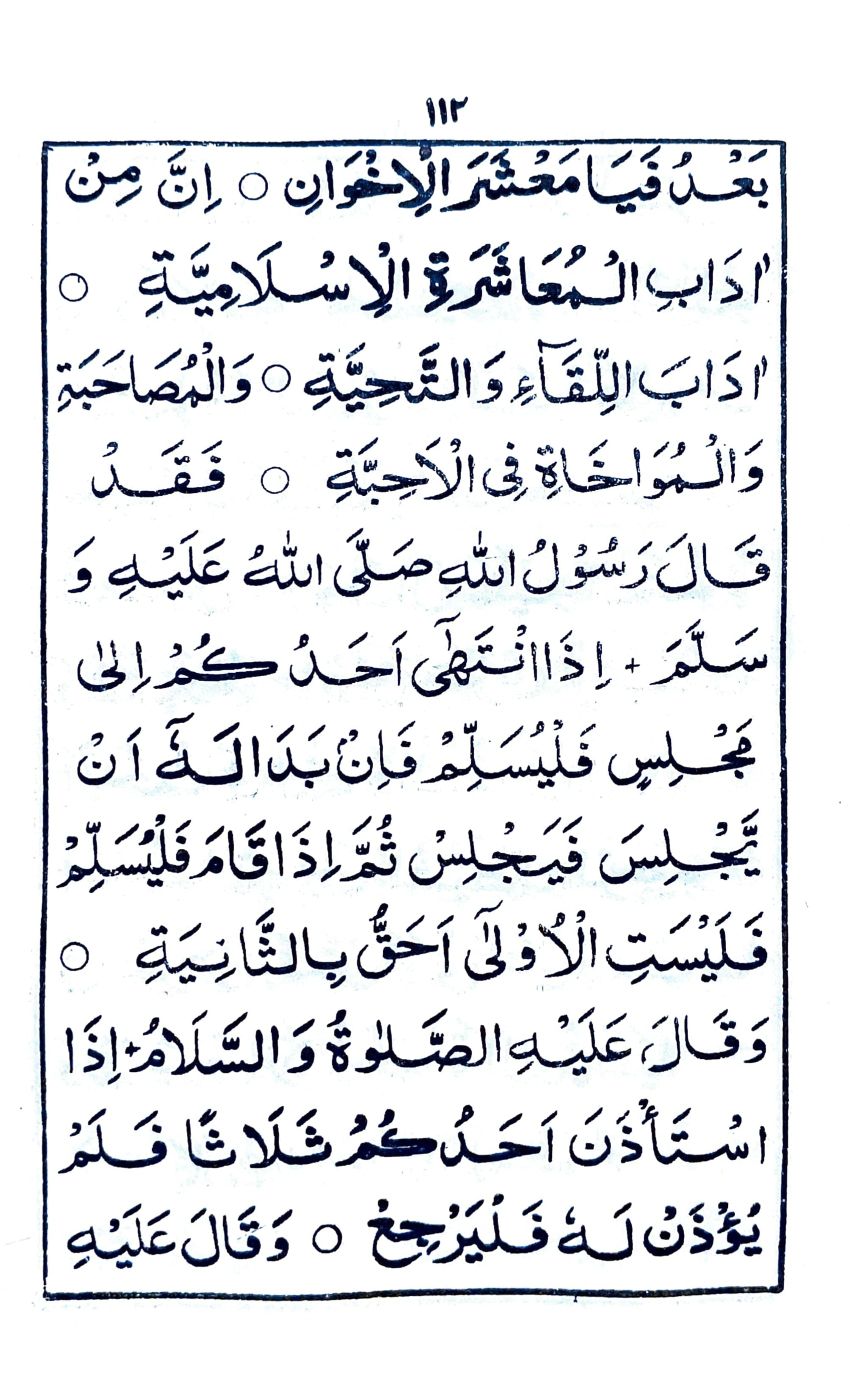 ١١٢
بَعْدُ فَيَا مَعْشَرَ الْاِخْوَانِ ○ اِنَّ مِنْ
اٰدَابِ الْمُعَاشَرَةِ الْاِسْلَامِيَّةِ ○
اٰدَابَ اللِّقَآءِ وَالتَّحِيَّةِ ○ وَالْمُصَاحَبَةِ
وَالْمُوَاخَاةِ فِى الْاَحِبَّةِ ○ فَقَدْ
قَالَ رَسُوْلُ اللهِ صَلَّى اللهُ عَلَيْهِ وَ
سَلَّمَ + اِذَا انْتَهٰٓى اَحَدُكُمْ اِلٰى
مَجْلِسٍ فَلْيُسَلِّمْ فَاِنْۢ بَدَالَهٗٓ اَنْ
يَّجْلِسَ فَيَجْلِسْ ثُمَّ اِذَا قَامَ فَلْيُسَلِّمْ
فَلَيْسَتِ الْاُوْلٰٓى اَحَقُّ بِالثَّانِيَةِ ○
وَقَالَ عَلَيْهِ الصَّلٰوةُ وَالسَّلَامُ + اِذَا
اسْتَأْذَنَ اَحَدُكُمْ ثَلَاثًا فَلَمْ
يُؤْذَنْ لَهٗ فَلْيَرْجِعْ ○ وَقَالَ عَلَيْهِ